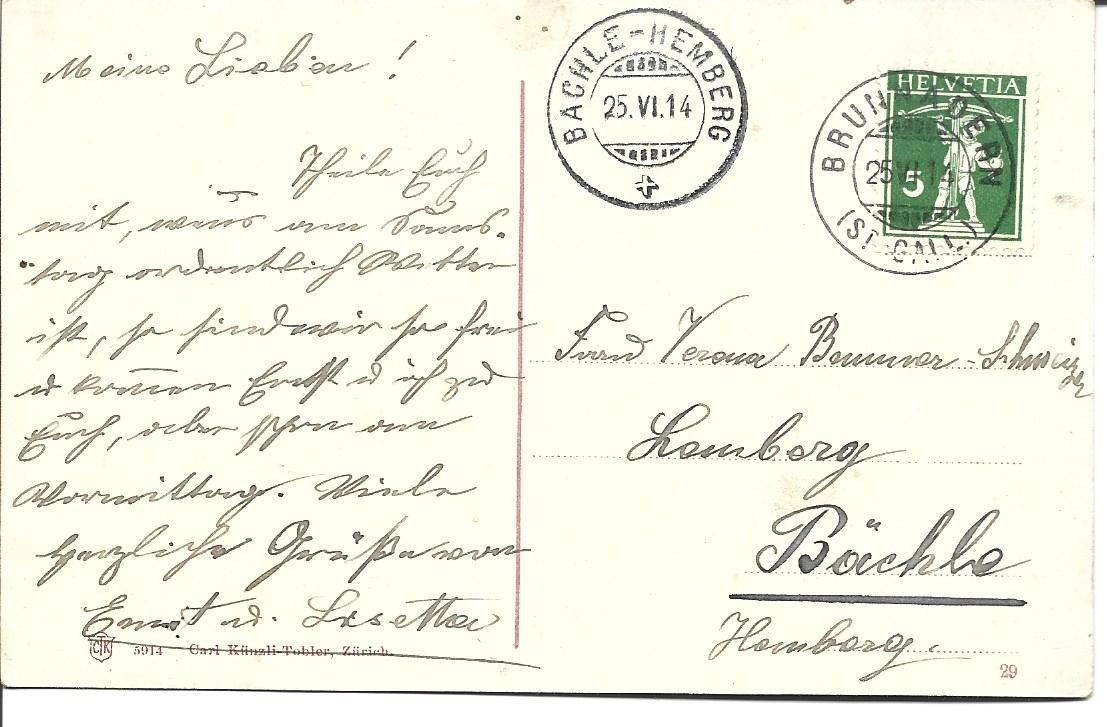 Meine Lieben!
Theile Euch
mit, wenns am Sams-
tag ordentlich Wetter
ist, so sind wir so frei
u kommen Ernst u ich zu
Euch, aber schon am
Vormittag. Viele
herzliche Grüße von
Ernst u. Lisetta
CTK 5914 Carl Künzli-Tobler, Zürich.
BÄCHLE-HEMBERG
25.VI.14
HELVETIA
5
BRUNNADERN
25.VI.14
(ST. GALL.)
Frau Verena Brunner-Schweizer
Lemberg
Bächle
Hemberg.
29